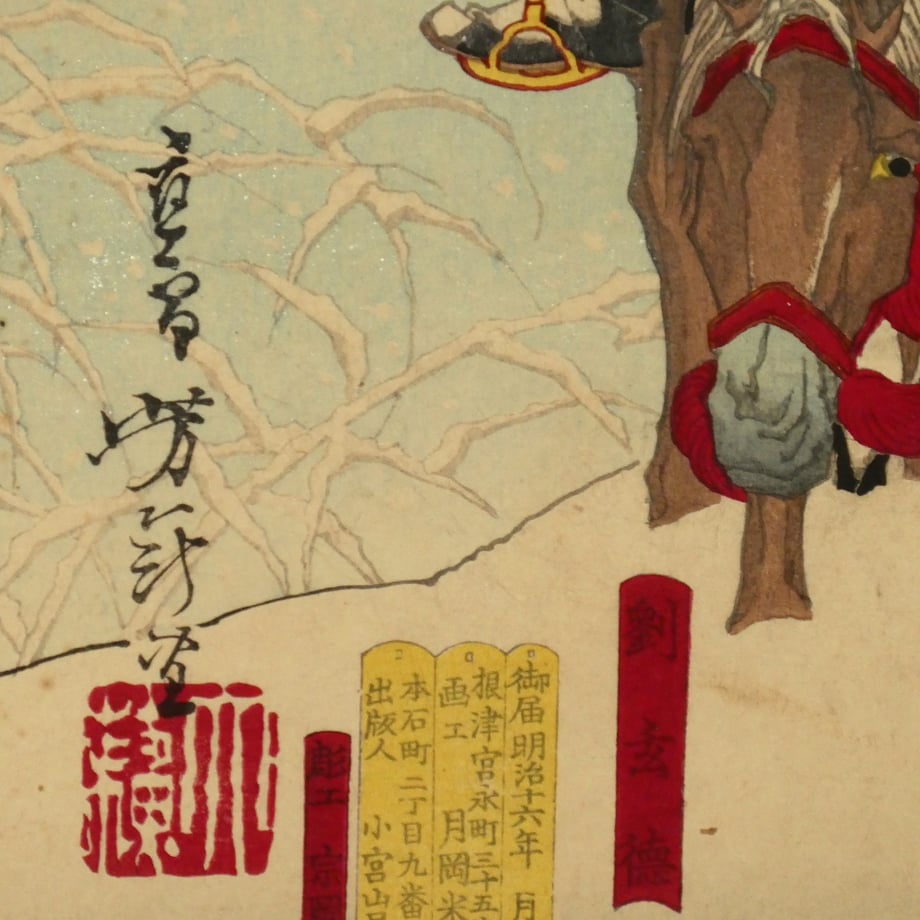 劉玄德
御届明治十六年　月
根津宮永町三十五
画工　月岡米
本石町二丁目九番
出版人　小宮山
彫工　宗
應需
芳年画